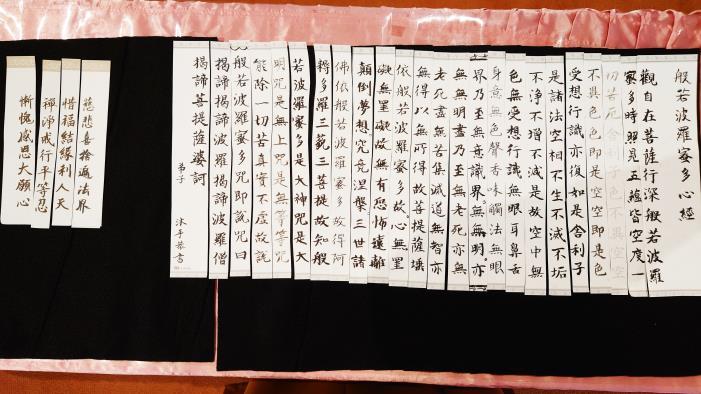 般若波羅蜜多心經
觀自在菩薩行深般若波羅
蜜多時照見五蘊皆空度一
切苦厄舍利子色不異空空
不異色色即是空空即是色
受想行識亦復如是舍利子
是諸法空相不生不滅不垢
不淨不增不減是故空中無
色無受想行識無眼耳鼻舌
身意無色聲香味觸法無眼
界乃至無意識界無無明亦
無無明盡乃至無老死亦無
老死盡無苦集滅道無智亦
無得以無所得故菩提薩埵
依般若波羅蜜多故心無罣
礙無罣礙故無有恐怖遠離
顛倒夢想究竟涅槃三世諸
佛依般若波羅蜜多故得阿
耨多羅三藐三菩提故知般
若波羅蜜多是大神咒是大
明咒是無上咒是無等等咒
能除一切苦真實不虛故說
般若波羅蜜多咒即說咒曰
揭諦揭諦波羅揭諦波羅僧
揭諦菩提薩婆訶
弟子 沐手恭書
慈悲喜捨遍法界
惜福結緣利人天
禪淨戒行平等忍
慚愧感恩大願心